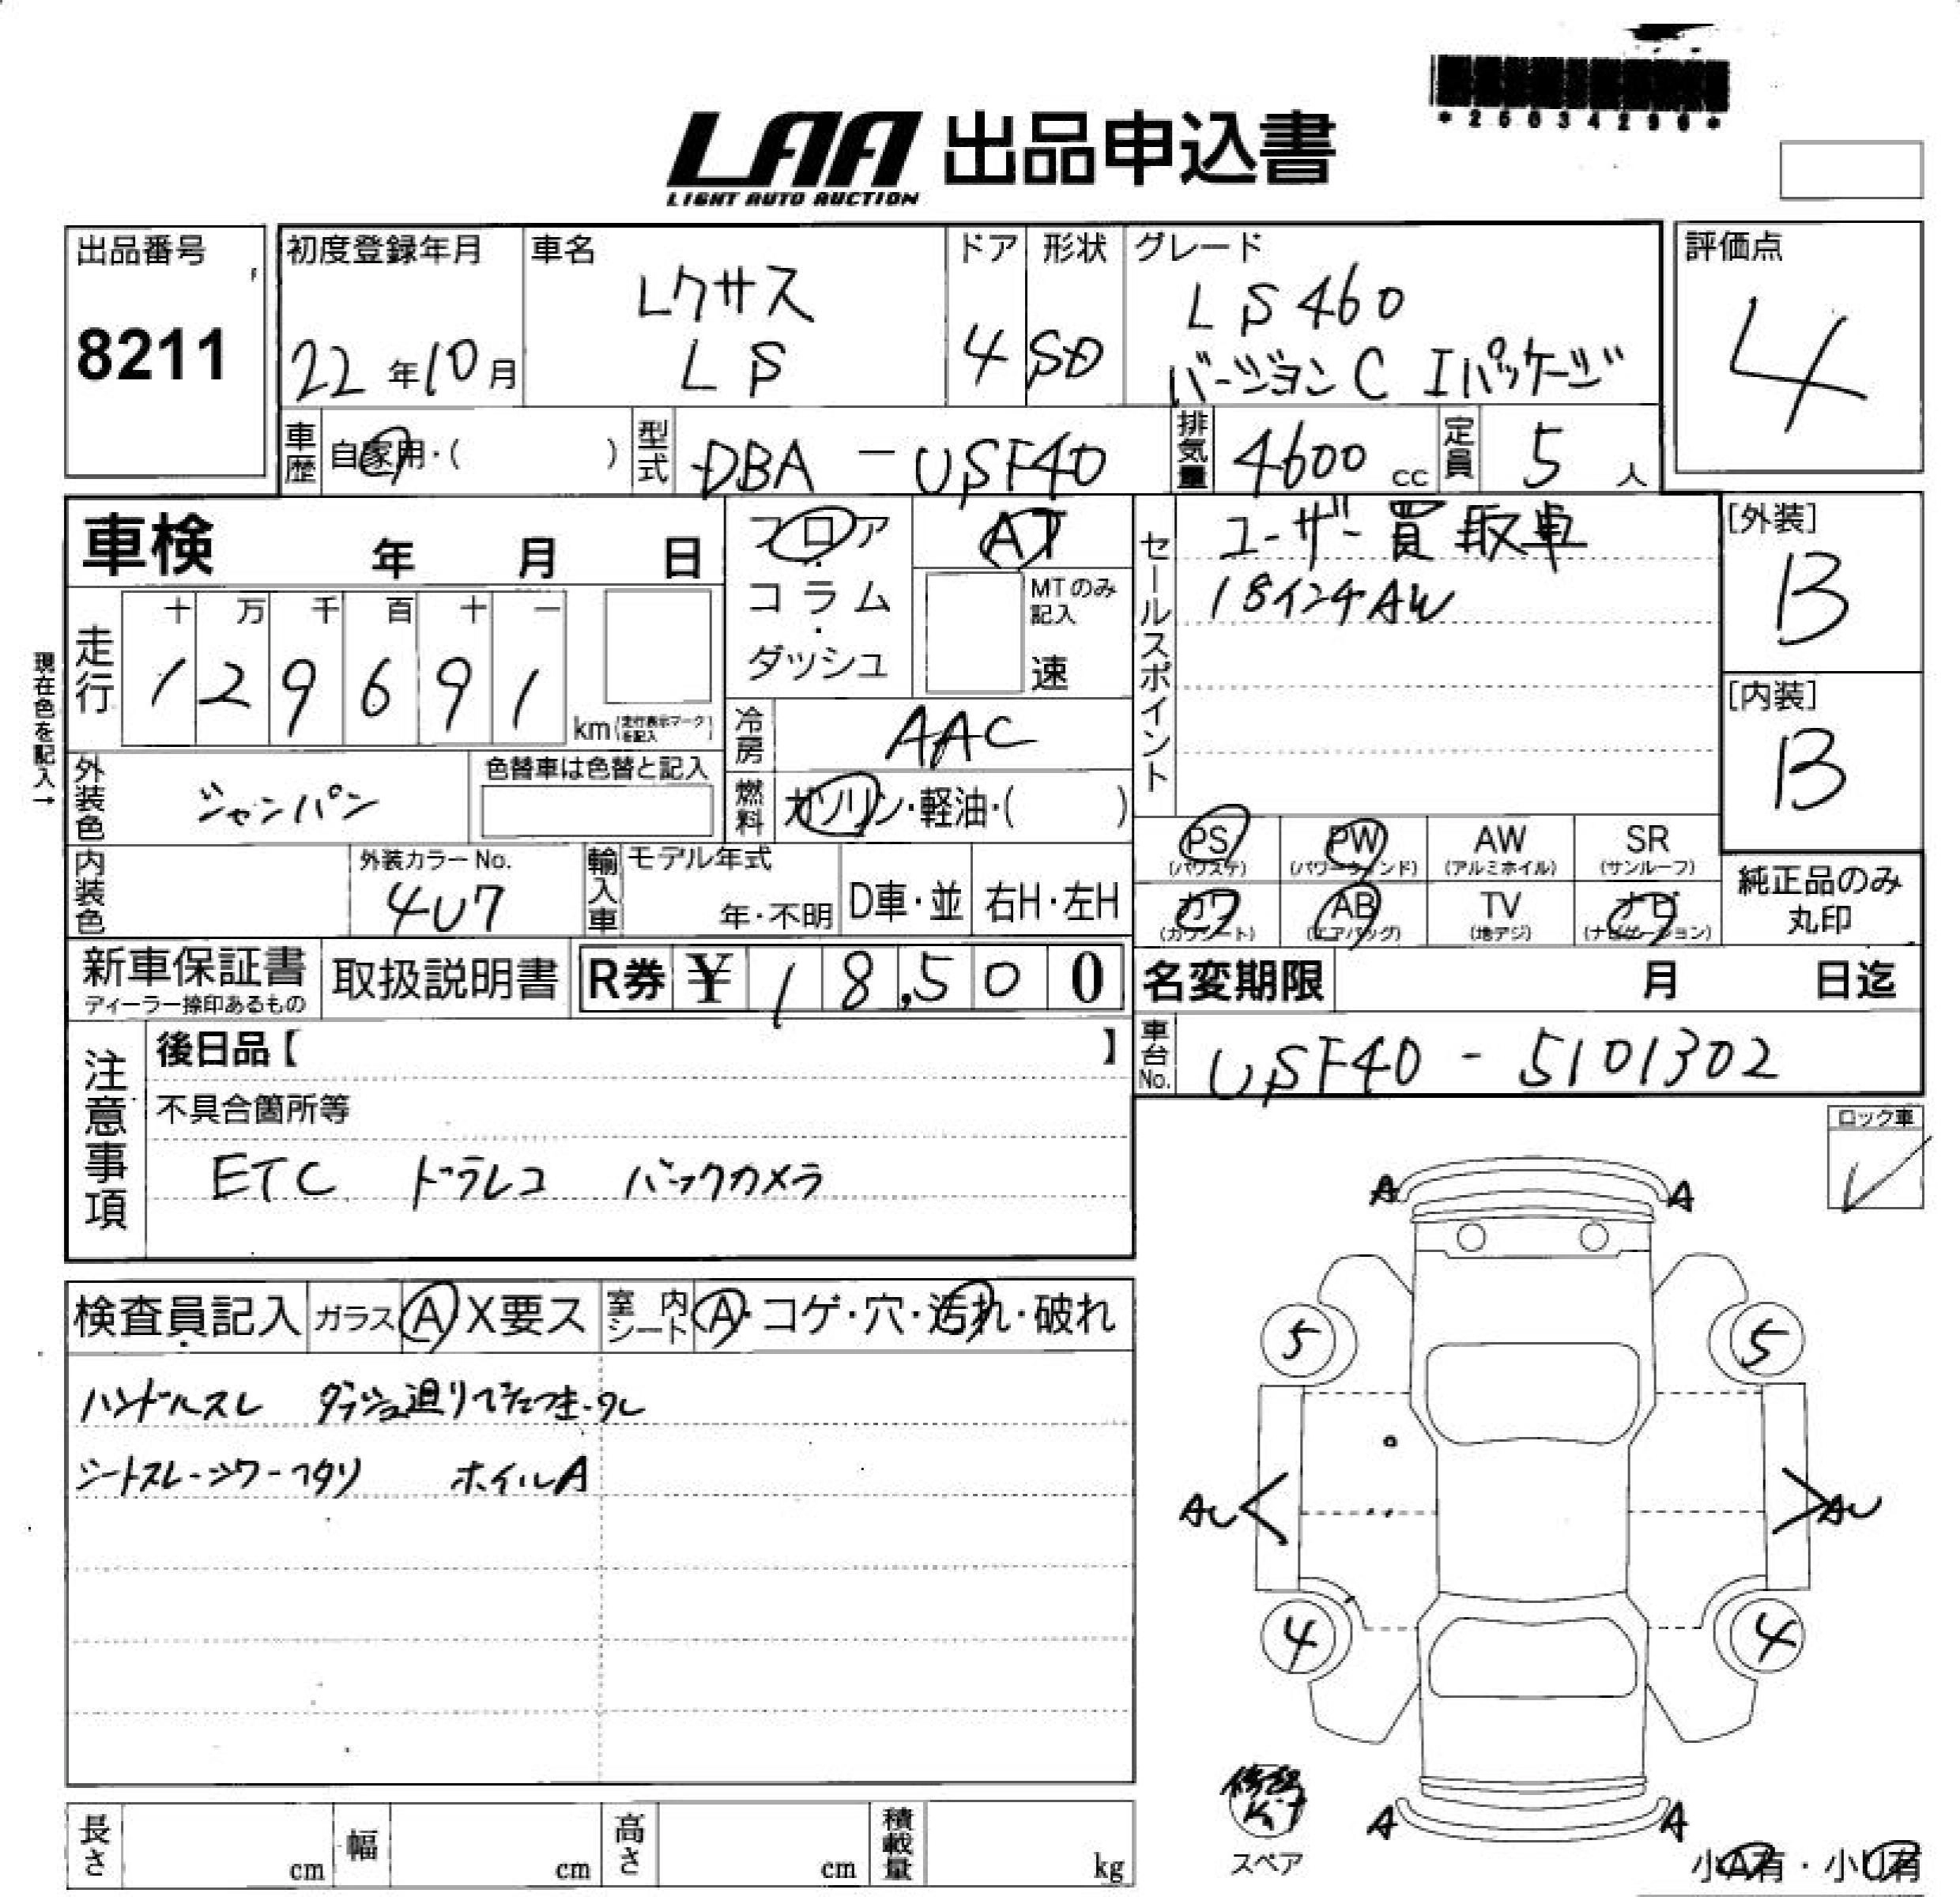 *25034296*
LAA 出品申込書
LIGHT AUTO AUCTION
出品番号
8211
初度登録年月
22年10月
車名
レクサス
LS
ドア
4
形状
SD
グレード
LS460
バージョンC Iパッケージ
評価点
4
車歴 自家用・( )
型式 DBA-USF40
排気量 4600 cc
定員 5 人
車検 年 月 日
フロア・コラム・ダッシュ
AT
MTのみ記入
速
セールスポイント
ユーザー買取車
18インチAW
[外装]
B
[内装]
B
現在色を記入→
走行
十 万 千 百 十 一
1 2 9 6 9 1 km (走行表示マークを記入)
冷房 AAC
外装色 シャンパン
色替車は色替と記入
燃料 ガソリン・軽油・( )
内装色
外装カラーNo.
4U7
輸入車
モデル年式
年・不明
D車・並
右H・左H
PS (パワステ)
PW (パワーウインド)
AW (アルミホイル)
SR (サンルーフ)
カワ (カワシート)
AB (エアバッグ)
TV (地デジ)
ナビ (ナビゲーション)
純正品のみ
丸印
新車保証書
ディーラー捺印あるもの
取扱説明書
R券 ¥ 18,500
名変期限 月 日迄
車台No. USF40-5101302
注意事項
後日品【 】
不具合箇所等
ETC ドラレコ バックカメラ
ロック車
検査員記入
ガラス A X要ス
室内シート A・コゲ・穴・汚れ・破れ
ハンドルスレ
シートスレ・シワ・ヘタリ ホイルA
A A
5 5
AU AU
4 4
A A
スペア
小A有・小U有
長さ cm
幅 cm
高さ cm
積載量 kg